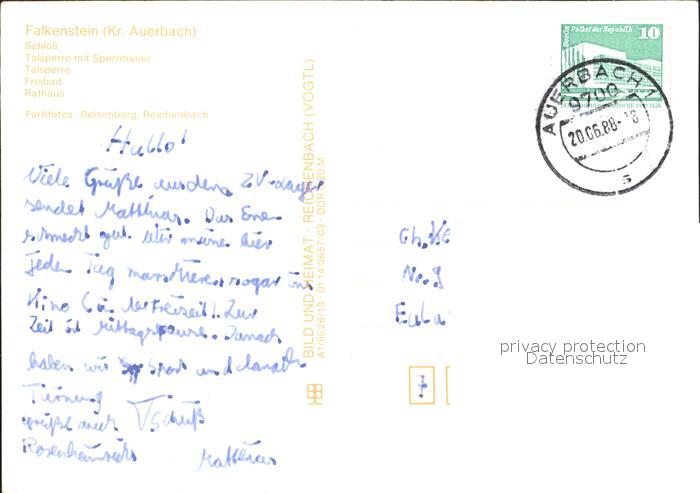 Falkenstein (Kr. Auerbach)
Schloß
Talsperre mit Sperrmauer
Talsperre
Freibad
Rathaus
Farbfotos: Reisenberg, Reichenbach
Hallo!
Viele Grüße aus dem ZV-Lager
sendet Matthias. Das Essen
schmeckt gut. Wir müssen hier
jeden Tag marschieren, sogar ins
Kino (in der Freizeit). Zur
Zeit ist Mittagspause. Danach
haben wir Sport und danach
Turnung
grüße auch Tschüß
Matthias
BILD UND HEIMAT · REICHENBACH (VOGTL)
A1/III/26/13 01 14 0657/03 · DDR · 0,20 M
Berlin Palast der Republik 10
AUERBACH 1
9700
20.06.88-18
s
Nr. 9
7
privacy protection
Datenschutz